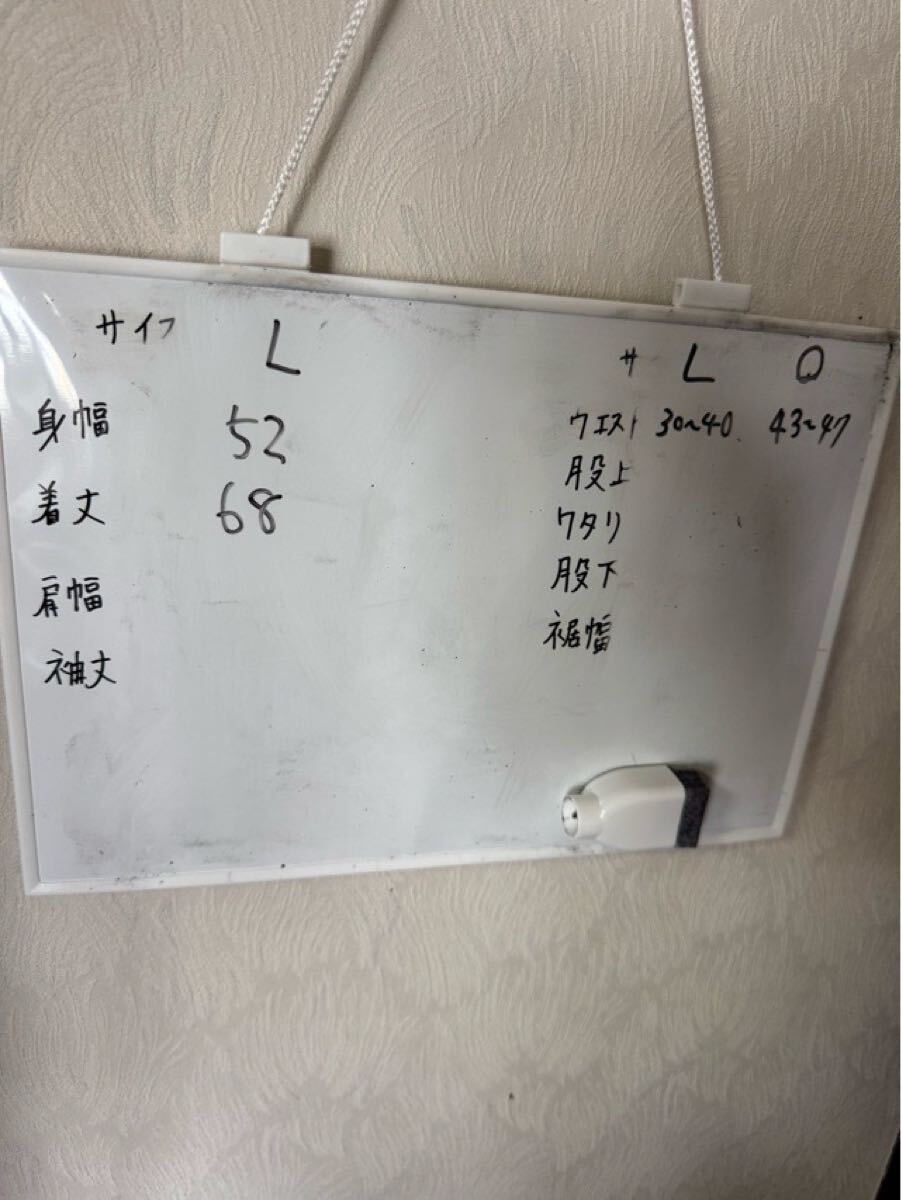 サイフ L
身幅 52
着丈 68
肩幅
袖丈
サ L O
ウエスト 30~40 43~47
股上
ワタリ
股下
裾幅